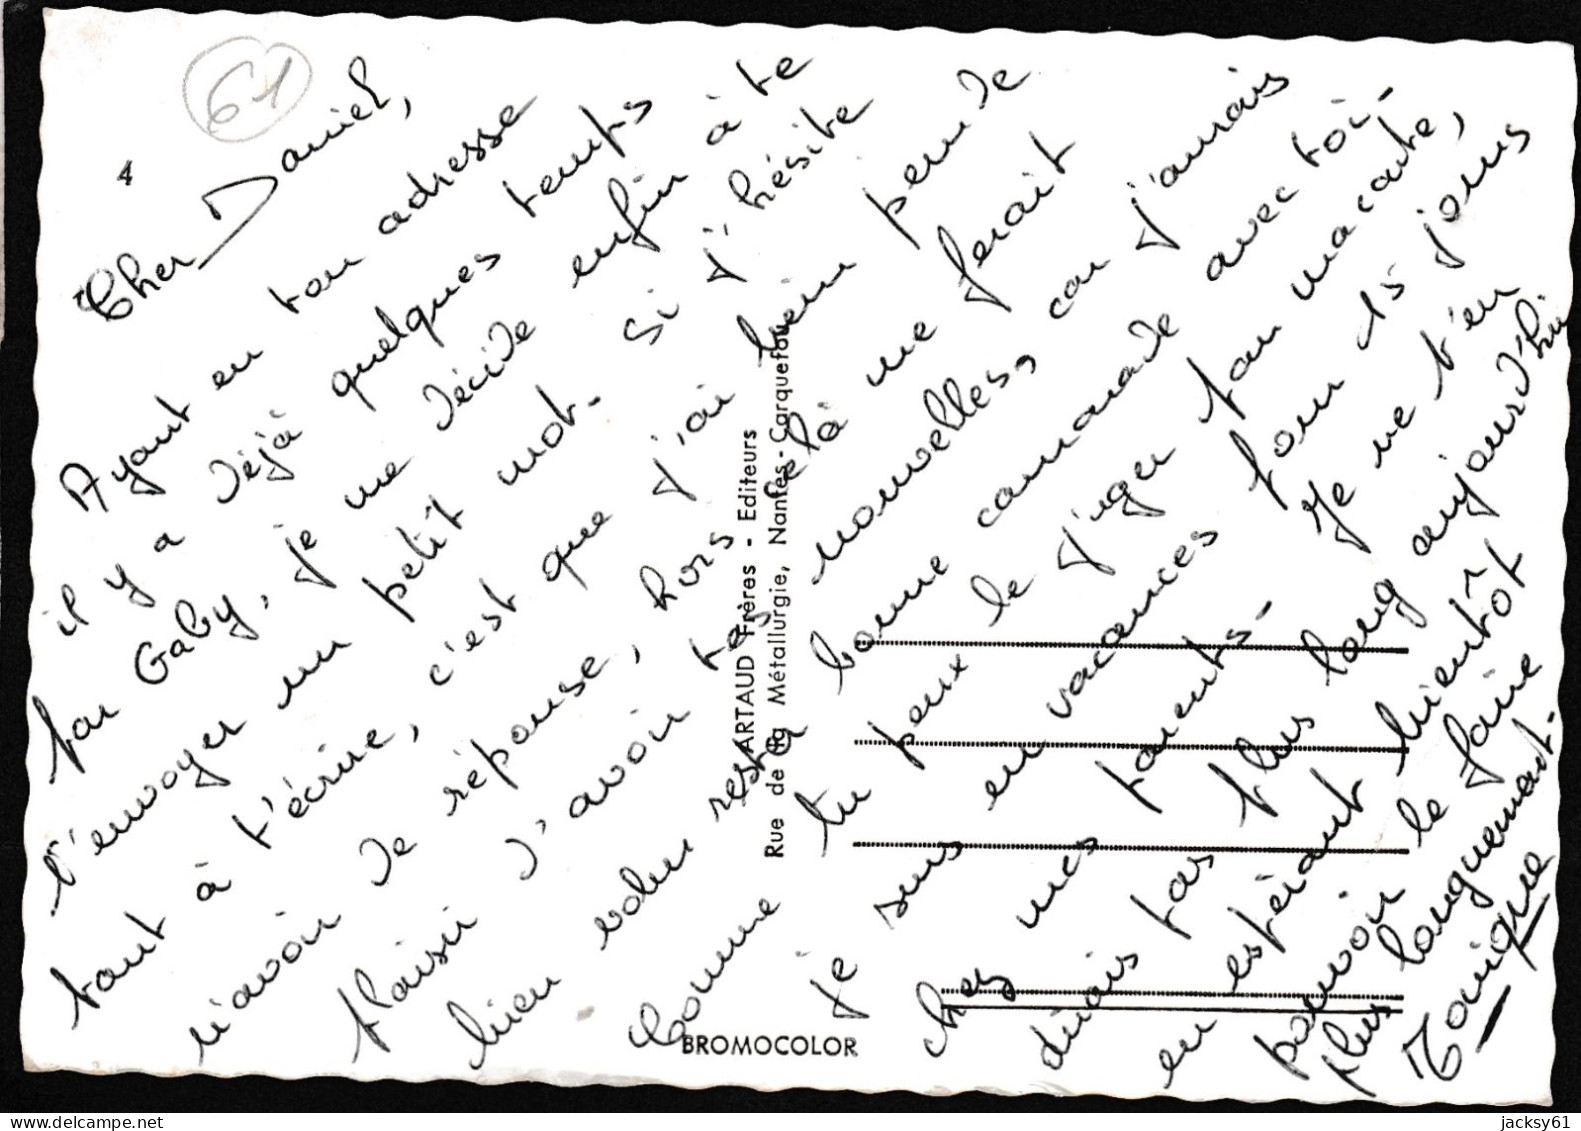 61
4
Cher Daniel,
Ayant eu ton adresse
il y a déjà quelques temps
par Gaby, je me décide enfin à te
t'envoyer un petit mot. Si j'hésite
tant à t'écrire, c'est que j'ai bien peur de
n'avoir de réponse, hors celà me ferait
plaisir d'avoir tes nouvelles, car j'amais
bien voulu rester bonne camarade avec toi-
Comme tu peux le j'uger par ma carte,
je suis en vacances pour 15 jours
chez mes parents- Je ne t'en
dirais pas plus long aujourd'hui
en espérant bientôt
pouvoir le faire
plus longuement.
Monique
ARTAUD Frères - Editeurs
Rue de la Métallurgie, Nantes-Carquefou
BROMOCOLOR
jacksy61